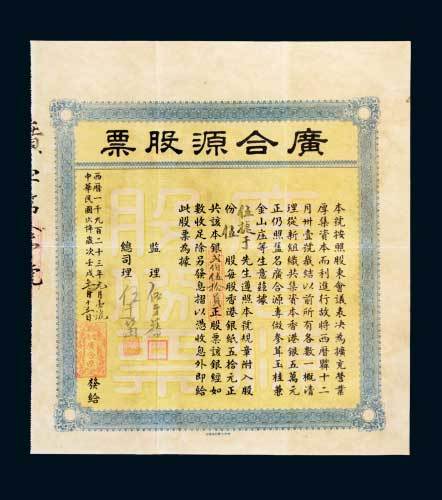 廣合源股票
本號按照股東會議表決為擴充營業
厚集資本而利進行故將西曆舊十二
月卅壹號歲結以前所有各數一概清
理從新組織共集資本香港銀五萬元
正仍照舊名廣合源專做參茸玉桂兼
金山庄等生意茲據
伍振于先生遵照本號規章附入股
份伍股每股香港銀紙五拾元正
共該本銀貳佰伍拾員正股票該銀經如
數收足除另發息摺以憑收息外即給
此股票為據
監理
總司理
西曆一千九百二十三年元月號
中華民國年歲次壬戌月十五日發給